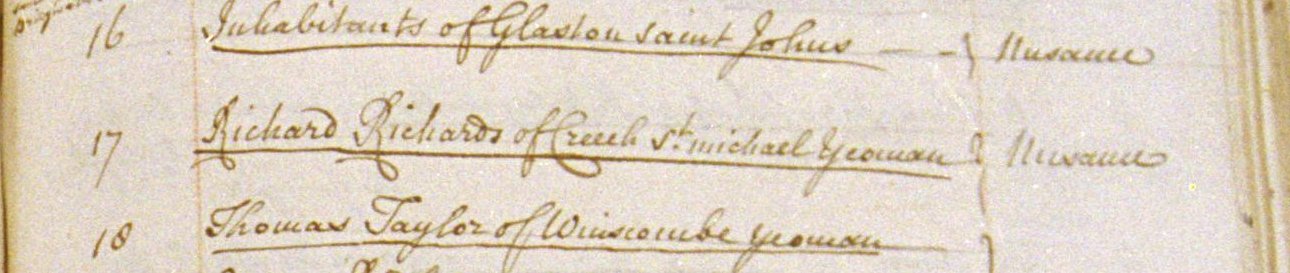 16 Inhabitants of Glaston Saint Johns — - } Nusance
17 Richard Richards of Creech St. michael Yeoman } Nusance
18 Thomas Taylor of Winscombe yeoman